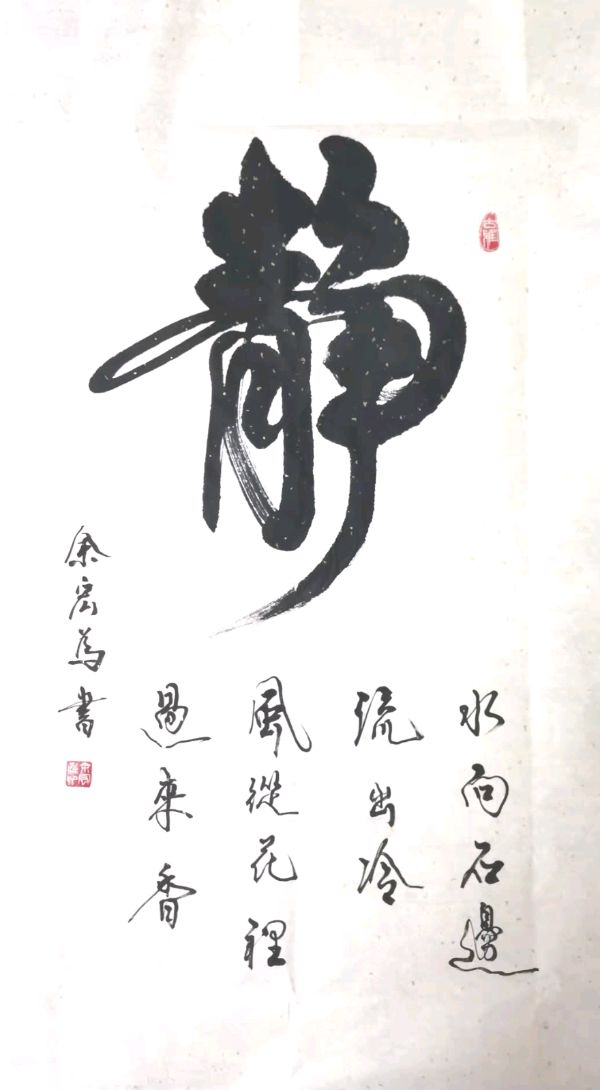 靜
水向石邊
流出冷
風從花裡
過來香
余宏為書